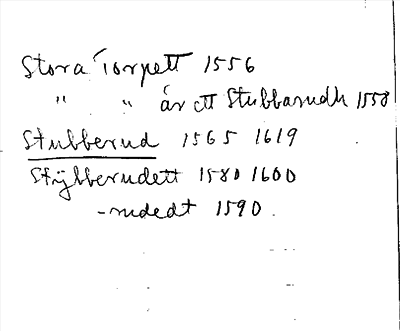 Stora Torpett 1556
" " är ett Stubbarudh 1558
Stubberud 1565 1619
Stÿbberudett 1580 1600
-rudedt 1590.